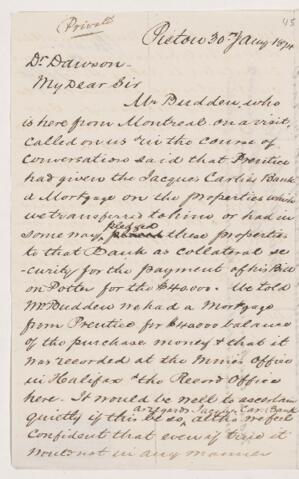 Private
45
Pictou 30th Jany 1874
Dr Dawson-
My Dear Sir
Mr Budden, who
is here from Montreal on a visit,
called on us & in the course of
Conversation said that Prentice
had given the Jacques Cartier Bank
a Mortgage on the properties which
we transferred to him or had in
some way pledged these properties
to that Bank as collateral se-
curity for the payment of his Bill
on Potter for the $40000. We told
Mr Budden we had a Mortgage
from Prentice for $40000 balance
of the purchase money & that it
was recorded at the Mines Office
in Halifax & the Record Office
here. It would be well to ascertain
as regards Jacques Car: Bank
quietly if this be so, altho we feel
Confident that even if true it
would not in any manner